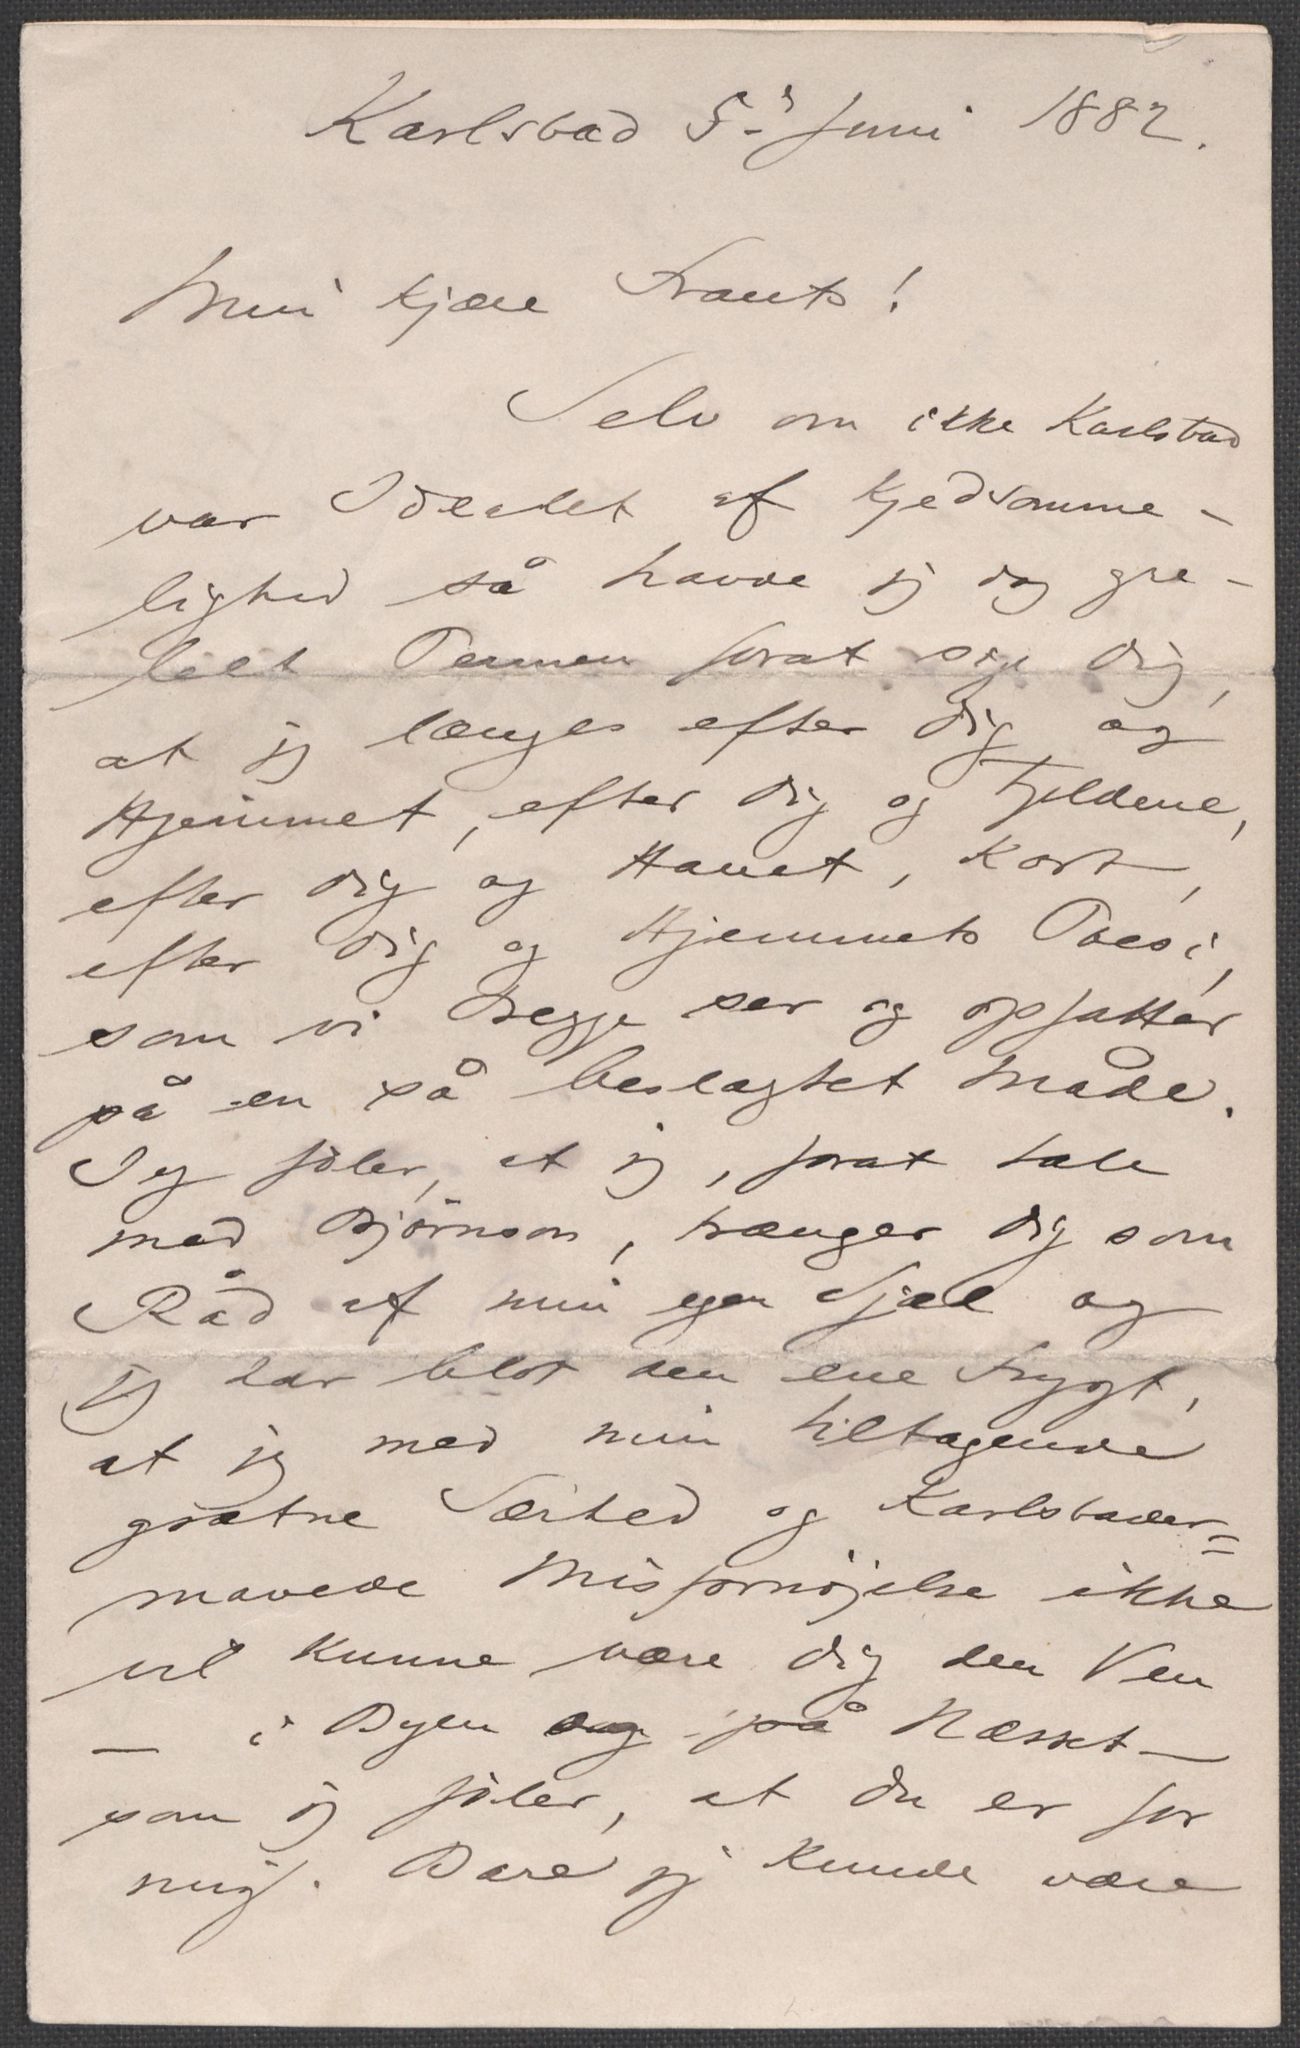 Karlsbad 5te Juni 1882.
Min kjære Frants!
Selv om ikke Karlsbad
var Idealet af Kjedsomme-
lighed så havde jeg dog gre-
bet Pennen forat sige dig,
at jeg længes efter dig og
Hjemmet, efter dig og Fjeldene,
efter dig og Havet, kort,
efter dig og Hjemmets Poesi,
som vi begge ser og opfatter
på en så beslægtet Måde.
Jeg føler, at jeg, forat tale
med Bjørnson, trænger dig som
Råd af min egen Sjæl og
jeg har blot den ene Frygt,
at jeg med min tiltagende
grætne Særhed og Karlsbader=
mavede Misfornøjelse ikke
vil kunne være dig den Ven
– i Byen og på Næsset –
som jeg føler, at du er for
mig. Bare jeg kunde være